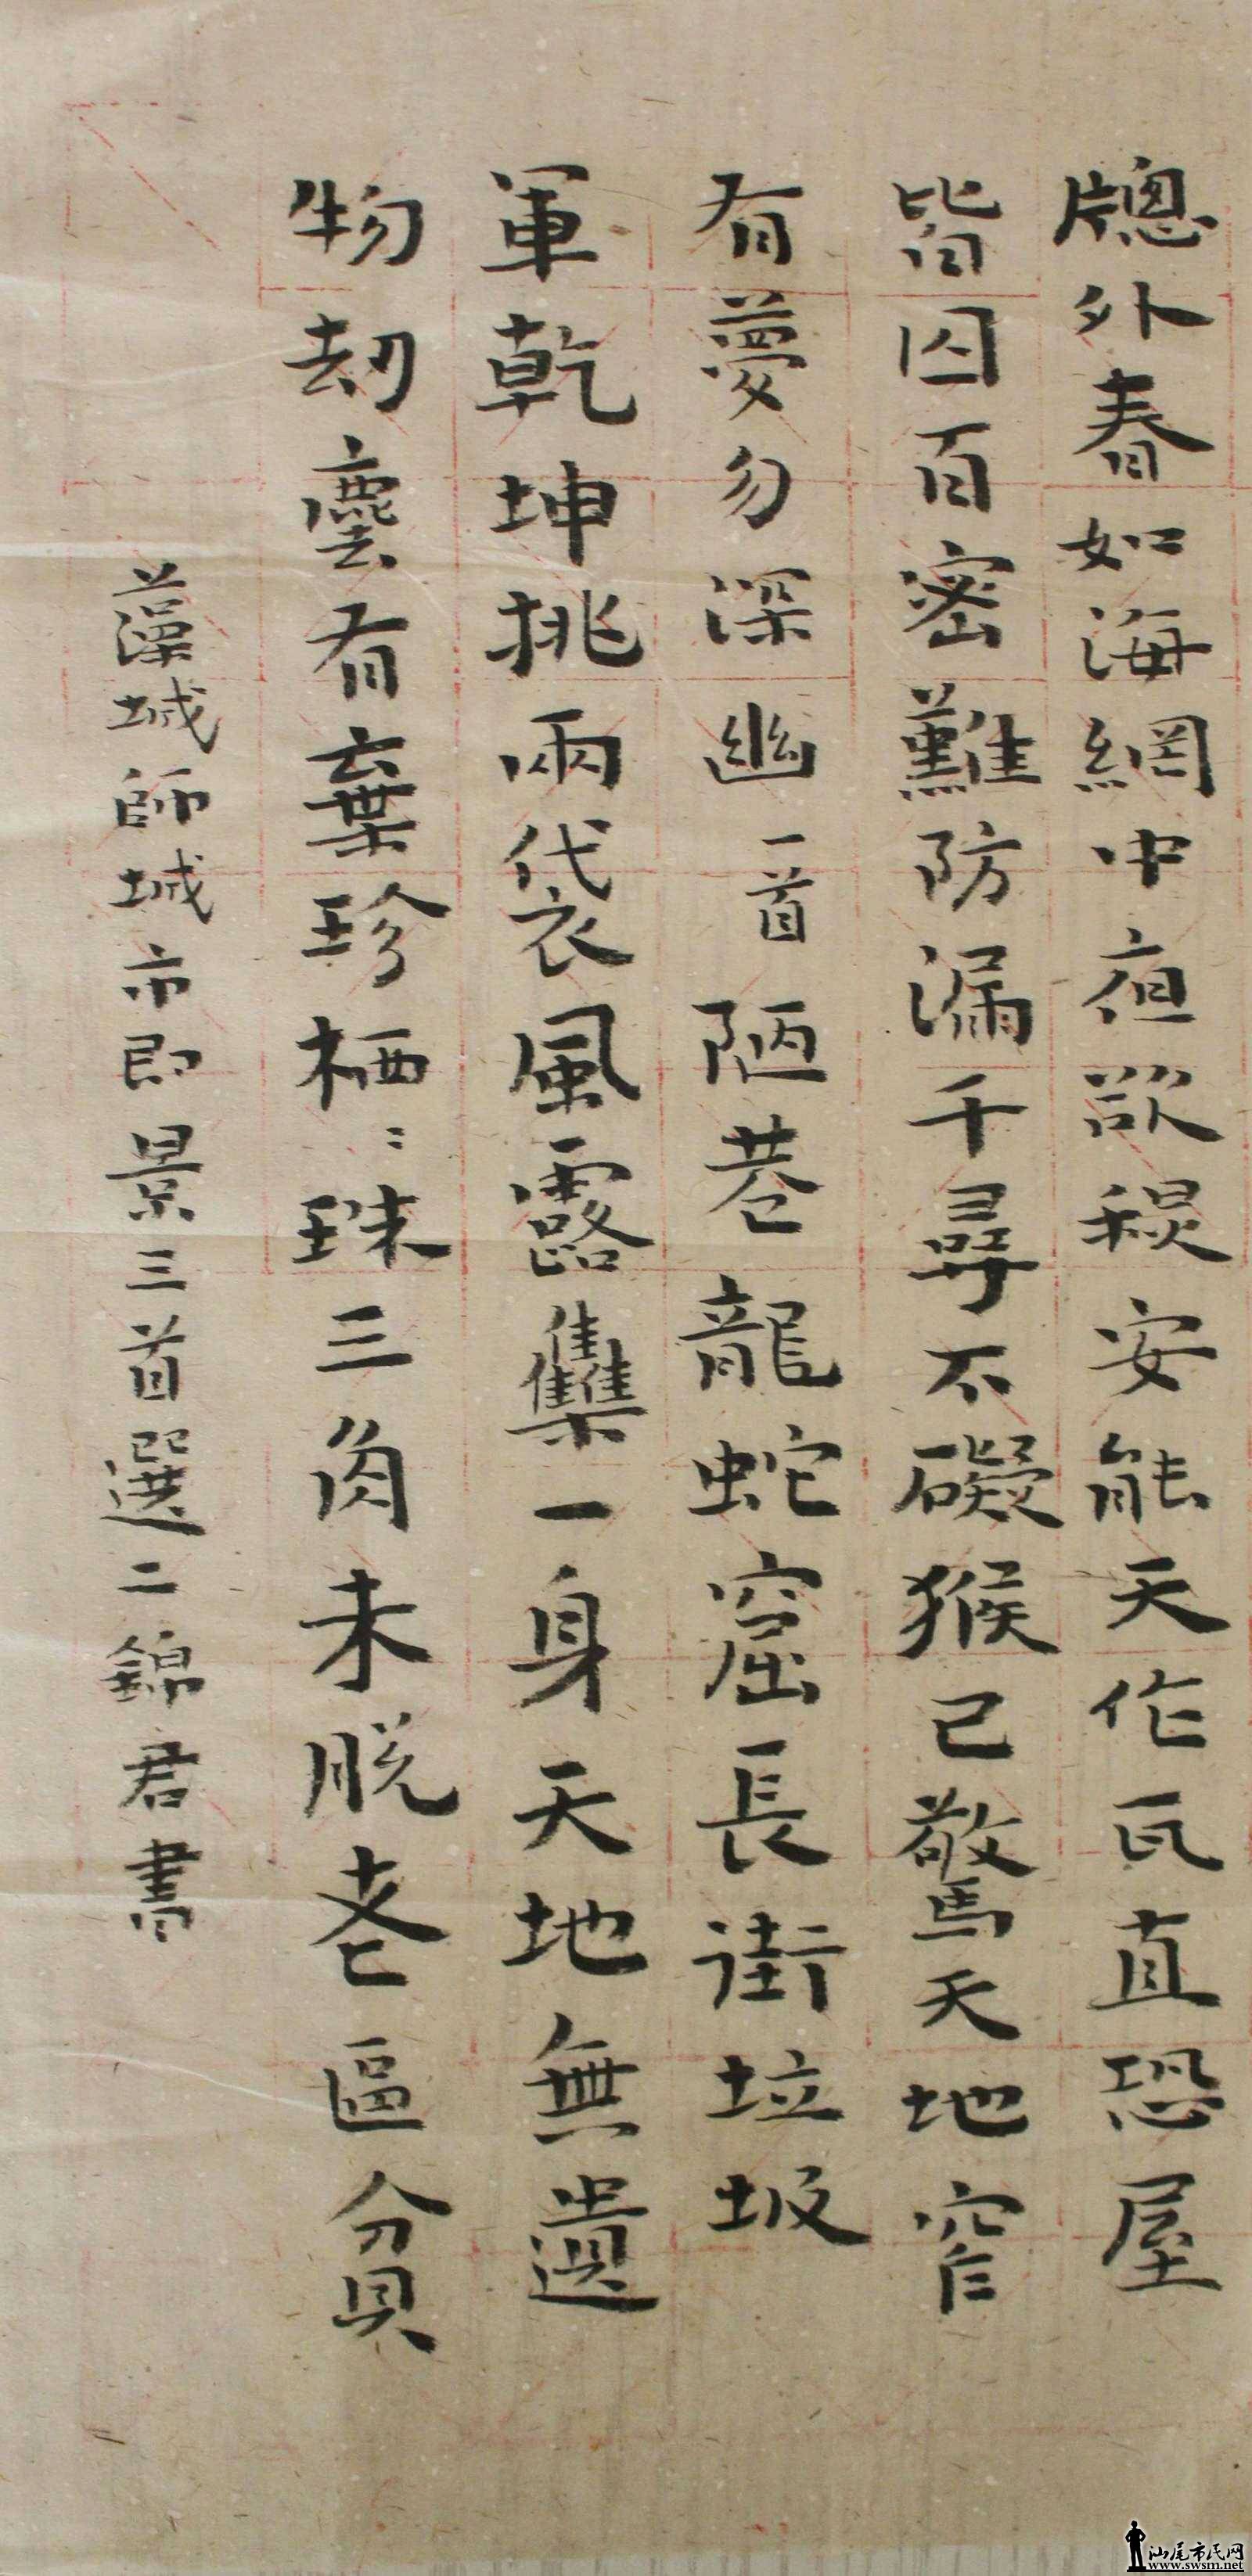 牕外春如海網中夜欲稳安能天作瓦直恐屋
皆囚百密難防漏千尋不礙猴已驚天地窄
有夢勿深幽 一首 陋巷龍蛇窟長街垃圾
軍乾坤挑兩袋風露集一身天地無遺
物劫塵有棄珍栖〻珠三角未脱老區貧
藻城師城市即景三首選二錦君書
汕尾市民网
www.swsm.net